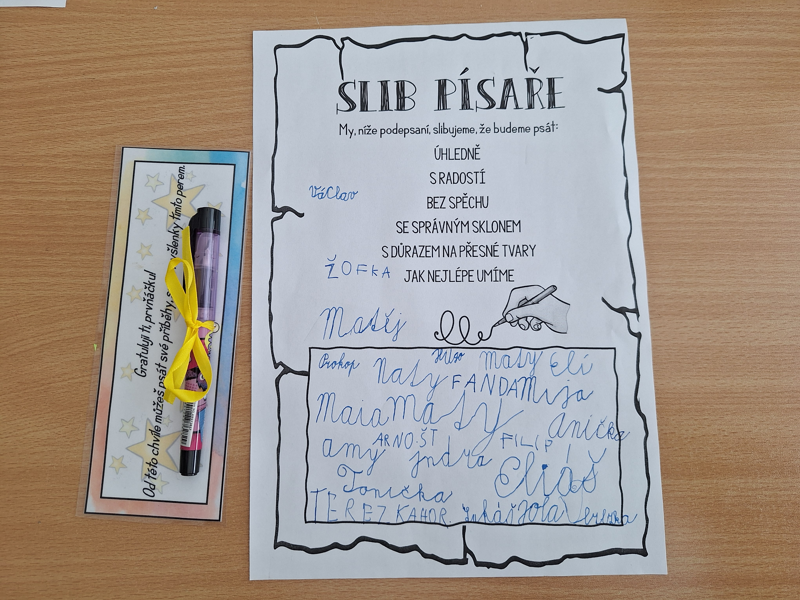 Gratuluji ti, prvňáčku!
Od této chvíle můžeš psát své příběhy, s myšlenky tímto perem.
SLIB PÍSAŘE
My, níže podepsaní, slibujeme, že budeme psát:
ÚHLEDNĚ
S RADOSTÍ
Václav
BEZ SPĚCHU
SE SPRÁVNÝM SKLONEM
S DŮRAZEM NA PŘESNÉ TVARY
ŽOFKA
JAK NEJLÉPE UMÍME
Matěj
Prokop Hugo Maty Elí
Naty FANDA Mija
Maia Maty Anička
ARNOŠT FILIP
amy Jndra Eliáš
Tonička
TEREZ Lukáš Jola